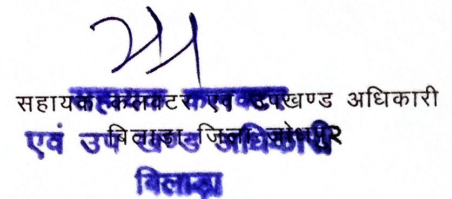 सहायक कलक्टर एवं उपखण्ड अधिकारी
बिलाड़ा जिला जोधपुर
सहायक कलक्टर
एवं उप खण्ड अधिकारी
बिलाड़ा